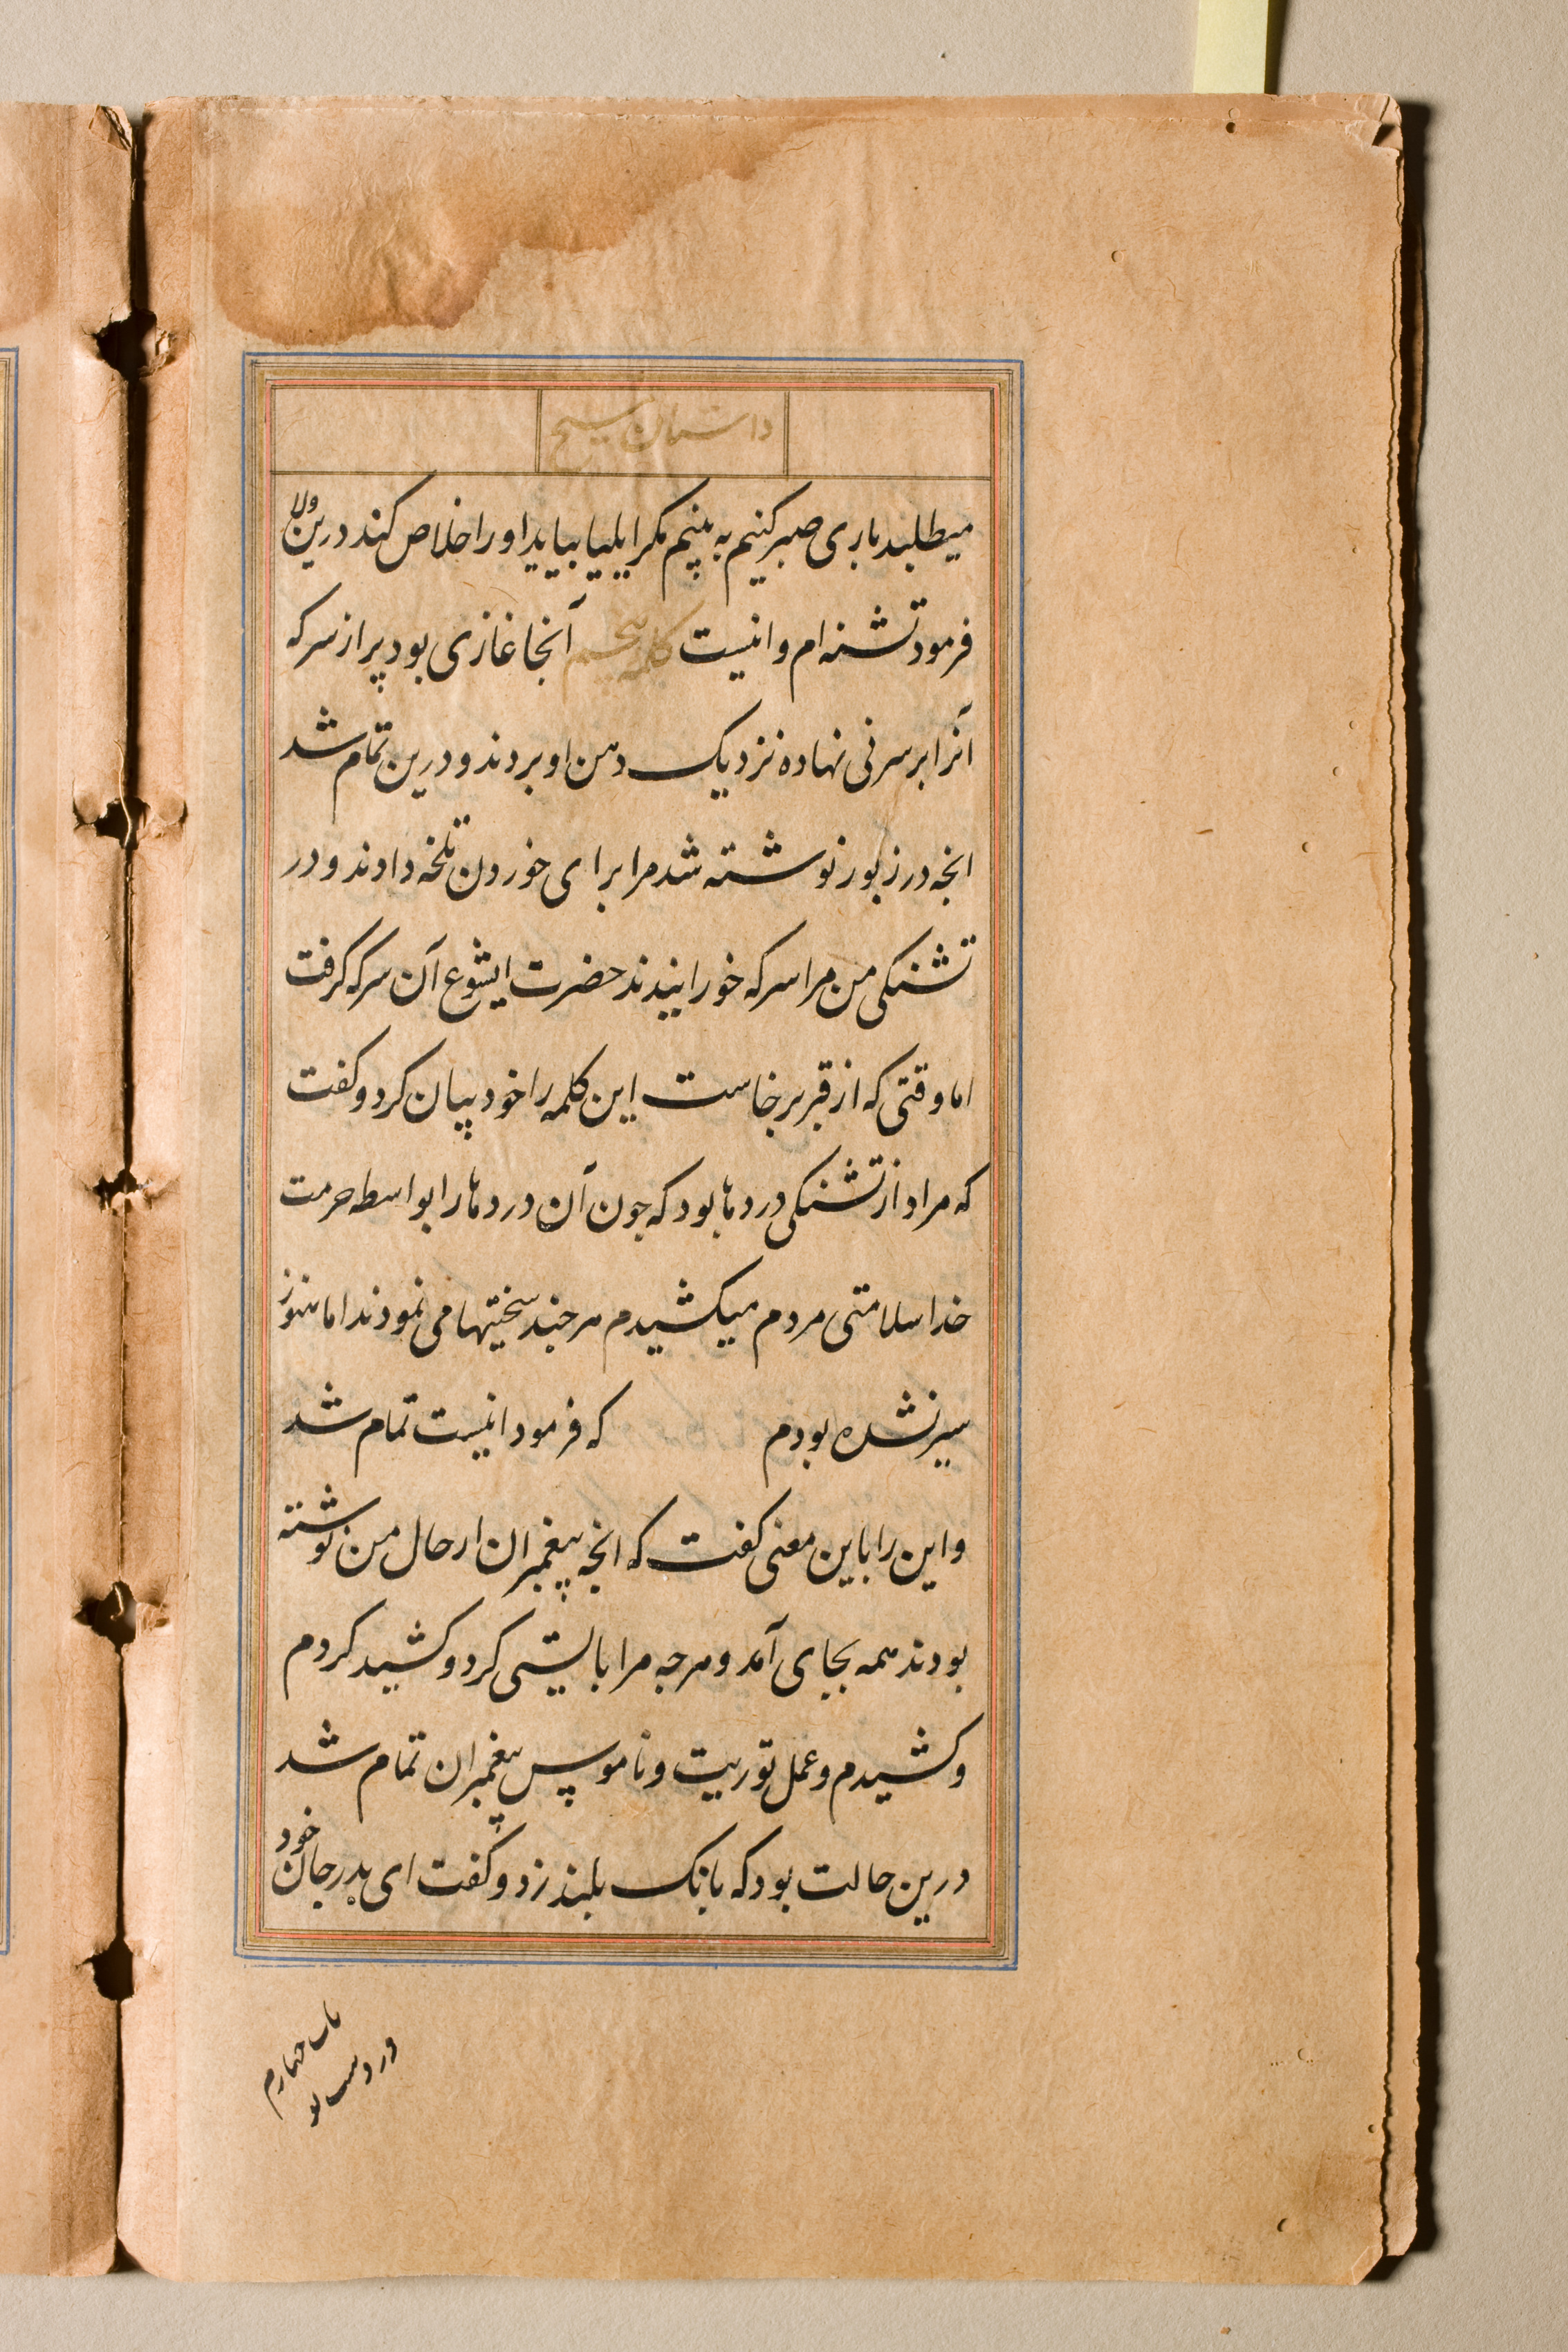 داستان مسیح
میطلبد باری صبر کنیم به بینم مکر ایلیا بیاید او را خلاص کند درین ولا
فرمود تشنه ام و اینست کلمه پنجم آنجا غازی بود پر از سرکه
آنرا بر سر نی نهاده نزدیک دهن او بردند و درین تمام شد
انجه در زبور نوشته شد مرا برای خوردن تلخه دادند و در
تشنکی من مرا سرکه خورانیدند حضرت ایشوع آن سرکه کرفت
اما وقتی که از قبر برخاست این کلمه را خود بیان کرد و کفت
که مراد از تشنکی دردها بود که جون آن دردها را بواسطه حرمت
خدا سلامتی مردم میکشیدم هر جند سختیها می نمودند اما هنوز
سیر نشده بودم که فرمود اینست تمام شد
و این را باین معنی کفت که انجه پیغمبران از حال من نوشته
بودند همه بجای آمد و هرجه مرا بایستی کرد و کشید کردم
و کشیدم و عمل توریت و ناموس پیغمبران تمام شد
درین حالت بود که بانک بلند زد و کفت ای پدر جان خود
باب چهارم
در دست تو